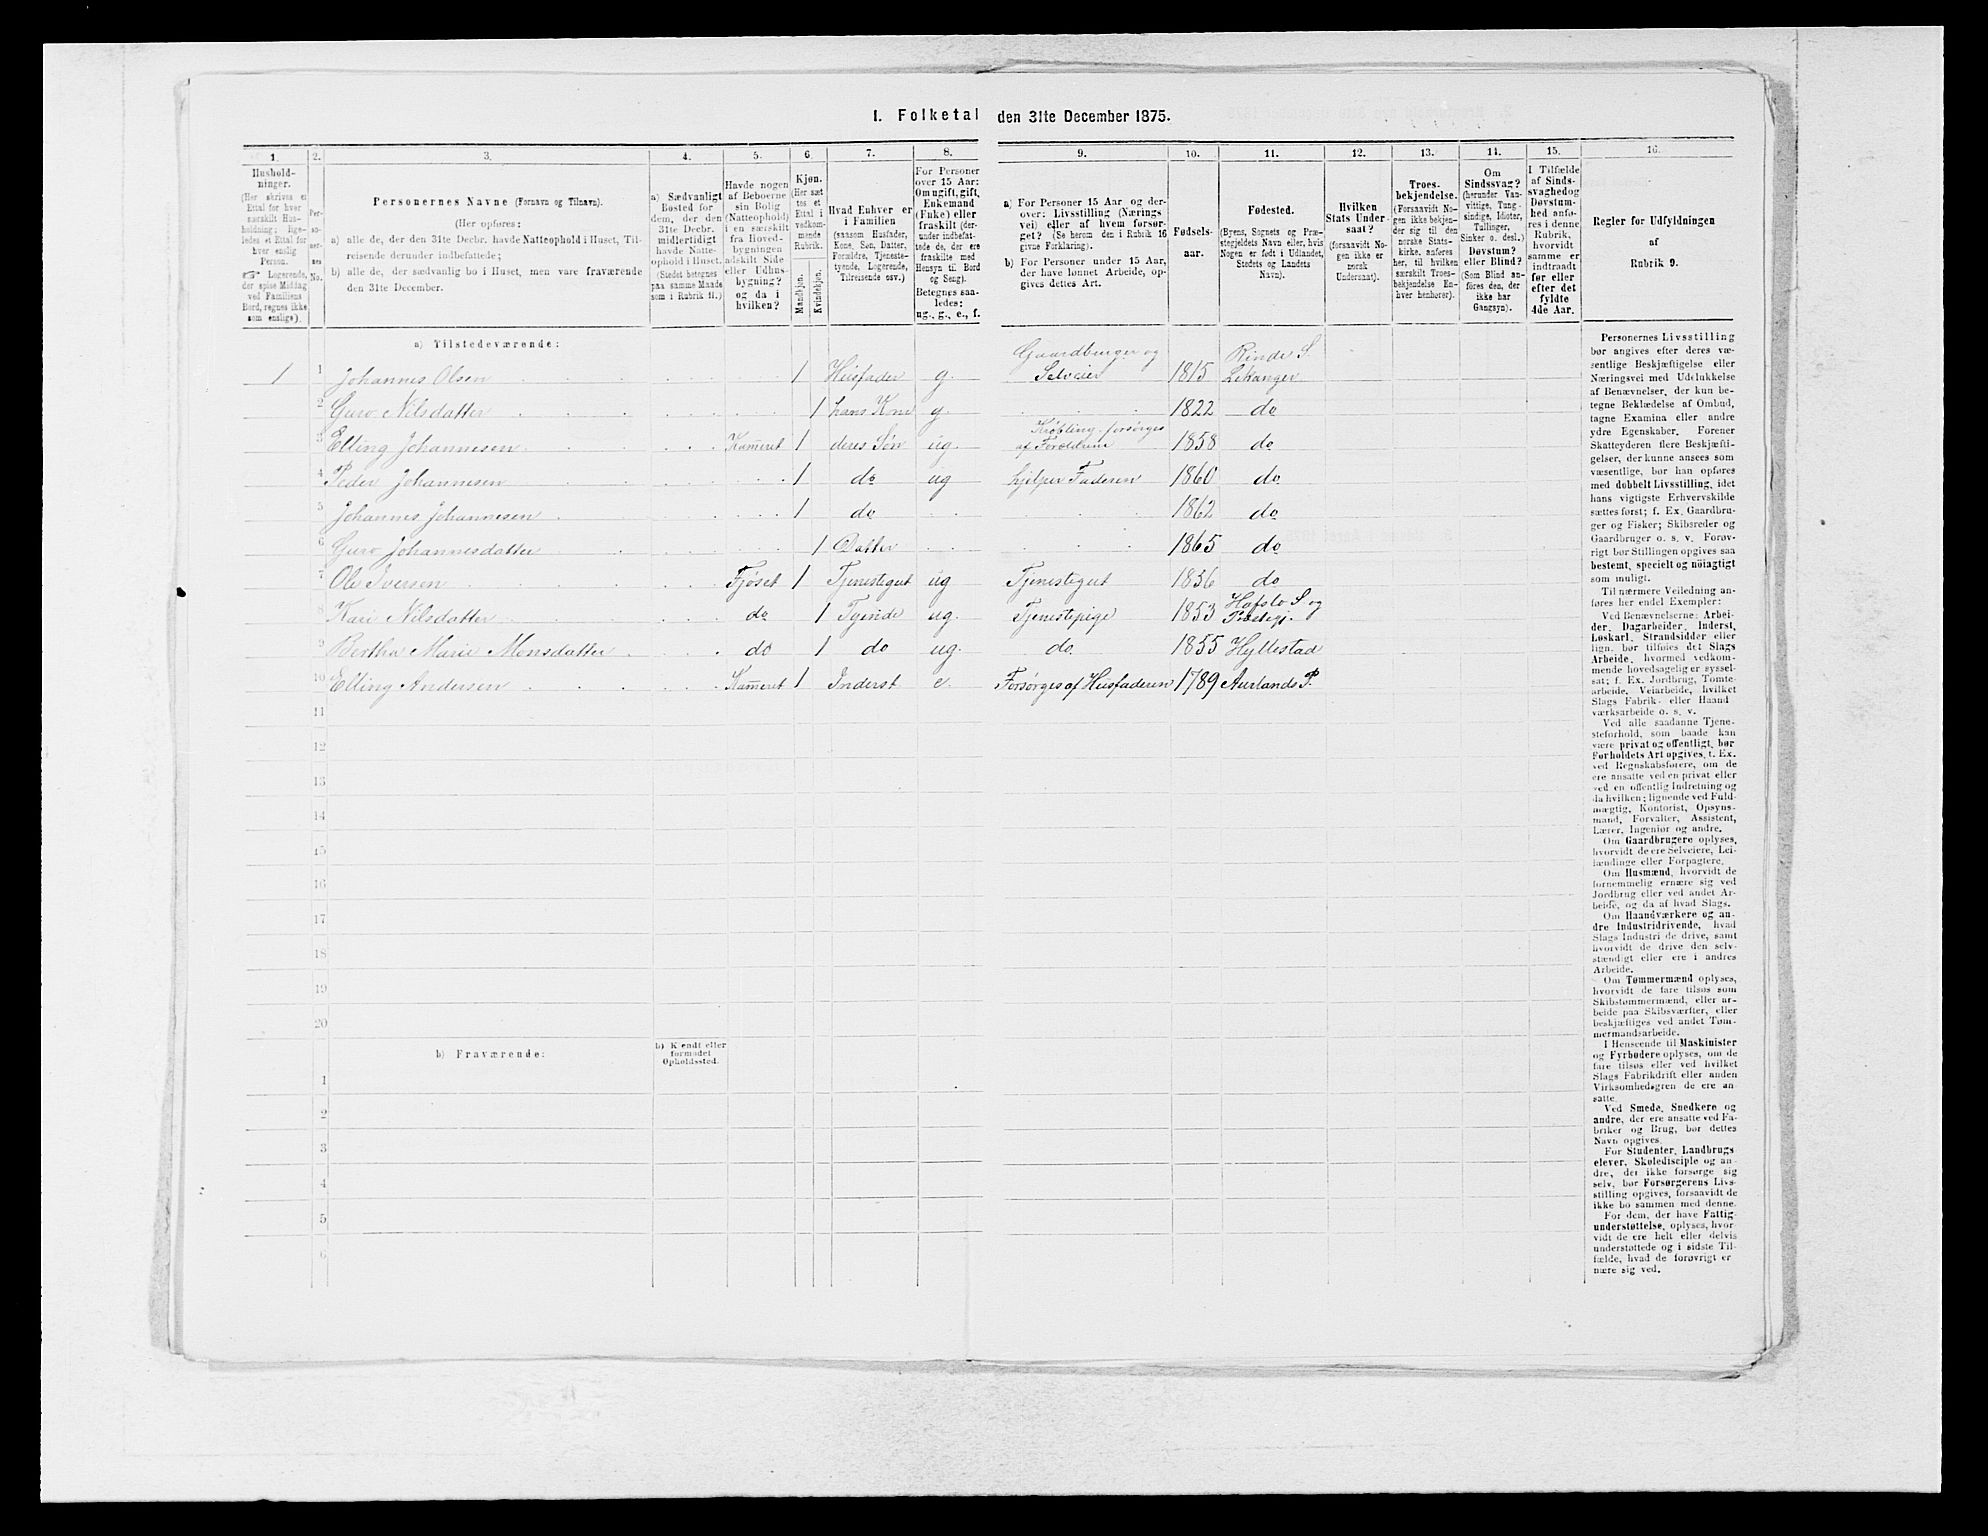 I. Folketal den 31te December 1875.
1. 2. 3. 4. 5. 6. 7. 8. 9. 10. 11. 12. 13. 14. 15. 16.
Hushold-
ninger.
(Her skrives et
Ettal for hver
særskilt Hus-
holdning; lige-
ledes et Ettal for
hver enslig
Person.
☞ Logerende,
der spise Middag
ved Familiens
Bord, regnes ikke
som enslige).
Per-
so-
ner-
nes
No.
Personernes Navne (Fornavn og Tilnavn).
(Her opføres:
a) alle de, der den 31te Decbr. havde Natteophold i Huset, Til-
reisende derunder indbefattede;
b) alle de, der sædvanlig bo i Huset, men vare fraværende
den 31te December.
a) Sædvanligt
Bosted for
dem, der den
31te Decbr.
midlertidigt
havde Natte-
ophold i Huset.
(Stedet betegnes
paa samme Maade
som i Rubrik 11.)
Havde nogen
af Beboerne
sin Bolig
(Natteophold)
i en særskilt
fra Hoved-
bygningen
adskilt Side
eller Udhus-
bygning?
og da i
hvilken?
Kjøn.
(Her sæt
tes et
Ettal i
vedkom-
mende
Rubrik.
Mandkjøn.
Kvindekjøn.
Hvad Enhver er
i Familien
(saasom Husfader,
Kone, Søn, Datter,
Forældre, Tjeneste-
tyende, Logerende,
Tilreisende osv.)
For Personer
over 15 Aar:
Om ugift, gift,
Enkemand
(Enke) eller
fraskilt (der-
under indbefat-
tede de, der ere
fraskilte med
Hensyn til Bord
og Seng).
Betegnes saa-
ledes:
ug., g., e., f.
a) For Personer 15 Aar og der-
over: Livsstilling (Nærings
vei) eller af hvem forsør-
get? (Se herom den i Rubrik 16
givne Forklaring).
b) For Personer under 15 Aar,
der have lønnet Arbeide, op-
gives dettes Art.
Fødsels-
aar.
Fødested.
(Byens, Sognets og Præ-
stegjeldets Navn eller, hvis
Nogen er født i Udlandet,
Stedets og Landets
Navn).
Hvilken
Stats Under-
saat?
(forsaavidt No-
gen ikke er
norsk
Undersaat).
Troes-
bekjendelse.
(Forsaavidt No-
gen ikke bekjen-
der sig til den
norske Stats-
kirke, anføres
her, til hvilken
særskilt Troes-
bekjendelse En-
hver henhører).
Om
Sindssvag?
(herunder Van-
vittige, Tung-
sindige, Idioter,
Tullinger,
Sinker o. desl.)
Døvstum?
eller Blind?
(Som Blind an-
føres den, der
ikke har
Gangsyn).
I Tilfælde
af Sinds-
svaghed og
Døvstum-
hed anfø-
res i denne
Rubrik,
hvorvidt
samme er
indtraadt
før eller
efter det
fyldte
4de Aar.
Regler for Udfyldningen
af
Rubrik 9.
a) Tilstedeværende:
1 1 Johannes Olsen 1 Husfader g. Gaardbruger og Selveier 1815 Rinde S. Lekanger
2 Guro Nilsdatter 1 hans Kone g. 1822 do
3 Elling Johannesen Kameret 1 deres Søn ug. Krøbling forsørges af Foreldrene 1858 do
4 Peder Johannesen 1 do ug hjelper Faderen 1860 do
5 Johannes Johannesen 1 do 1862 do
6 Guro Johannesdatter 1 Datter 1865 do
7 Ole Iversen Fjøset 1 Tjenestegut ug Tjenestegut 1856 do
8 Kari Nilsdatter do 1 Tyende ug. Tjenestepige 1853 Hafslo S. og Prestegj.
9 Bertha Marie Monsdatter do 1 do ug. do. 1855 Hyllestad
10 Elling Andersen Kameret 1 Inderst e. Forsørges af Husfaderen 1789 Aurlands P.
11
12
13
14
15
16
17
18
19
20
b) Fraværende:
b) Kendt eller
formodet
Opholdssted.
1
2
3
4
5
6
Personernes Livsstilling
bør angives efter deres væ-
sentlige Beskjæftigelse eller
Næringsvei med Udelukkelse
af Benævnelser, der kun be-
tegne Beklædelse af Ombud,
tagne Examina eller andre
ydre Egenskaber. Forener
Skatteyderen flere Beskjæfti-
gelser, der kunne ansees som
væsentlige, bør han opføres
med dobbelt Livsstilling, idet
hans vigtigste Erhvervskilde
sættes først; f. Ex. Gaardbru-
ger og Fisker; Skibsreder og
Gaardbruger o. s. v. Forøv-
rigt bør Stillingen opgives saa
bestemt, specielt og nøiagtigt
som muligt.
Til nærmere Veiledning an-
føres her endel Exempler:
Ved Benævnelserne: Arbei-
der, Dagarbeider, Inderst,
Løskarl, Strandsidder eller
lign. bør tilføies det Slags
Arbeide, hvormed vedkom-
mende hovedsagelig er syssel-
sat; f. Ex. Jordbrug, Tomte-
arbeide, Veiarbeide, hvilket
Slags Fabrik- eller Haand
værksarbeide o. s. v.
Ved alle saadanne Tjene-
steforhold, som baade kan
være privat og offentligt, bør
Forholdets Art opgives, t. Ex.
ved Regnskabsførere, om de
ere ansatte ved en privat eller
ved en offentlig Indretning og
da hvilken; lignende ved Fuld-
mægtig, Kontorist, Opsyns-
mand, Forvalter, Assistent,
Lærer, Ingeniør og andre.
Om Gaardbrugere oplyses,
hvorvidt de ere Selveiere, Lei-
lændinge eller Forpagtere.
Om Husmænd, hvorvidt de
fornemmelig ernære sig ved
Jordbrug eller ved andet Ar-
beide, og da af hvad Slags.
Om Haandværkere og an-
dre Industridrivende, hvad
Slags Industri de drive, samt
hvorvidt de drive den selv-
stændigt eller ere i andres
Arbeide.
Om Tømmermænd oplyses,
hvorvidt de fare tilsøs som
Skibstømmermænd, eller ar-
beide paa Skibsværfter, eller
beskjæftiges ved andet Tøm-
mermandsarbeide.
I Henseende til Maskinister
og Fyrbødere oplyses, om de
fare tilsøs eller ved hvilket
Slags Fabrikdrift eller anden
Virksomhedsgren de ere an-
satte.
Ved Smede, Snedkere og
andre, der ere ansatte ved Fa-
briker og Brug, bør dettes
Navn opgives.
For Studenter, Landbrugs
elever, Skoledisciple og an-
dre, der ikke forsørge sig
selv, bør Forsørgerens Livs-
stilling opgives, forsaavidt de
ikke bo sammen med denne.
For dem, der have Fattig-
understøttelse, oplyses, hvor-
vidt de ere helt eller delvis
understøttede og i sidste Til-
fælde, hvad de forøvrigt er
nære sig ved.